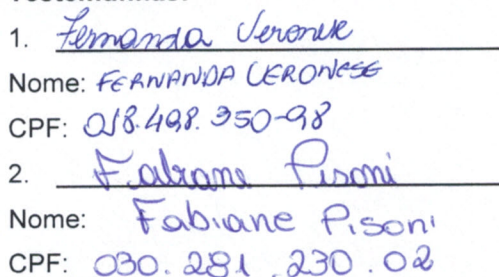 1. Fernanda Veronese
Nome: FERNANDA VERONESE
CPF: 018.498.350-98
2. Fabiane Pisoni
Nome: Fabiane Pisoni
CPF: 030.281.230.02